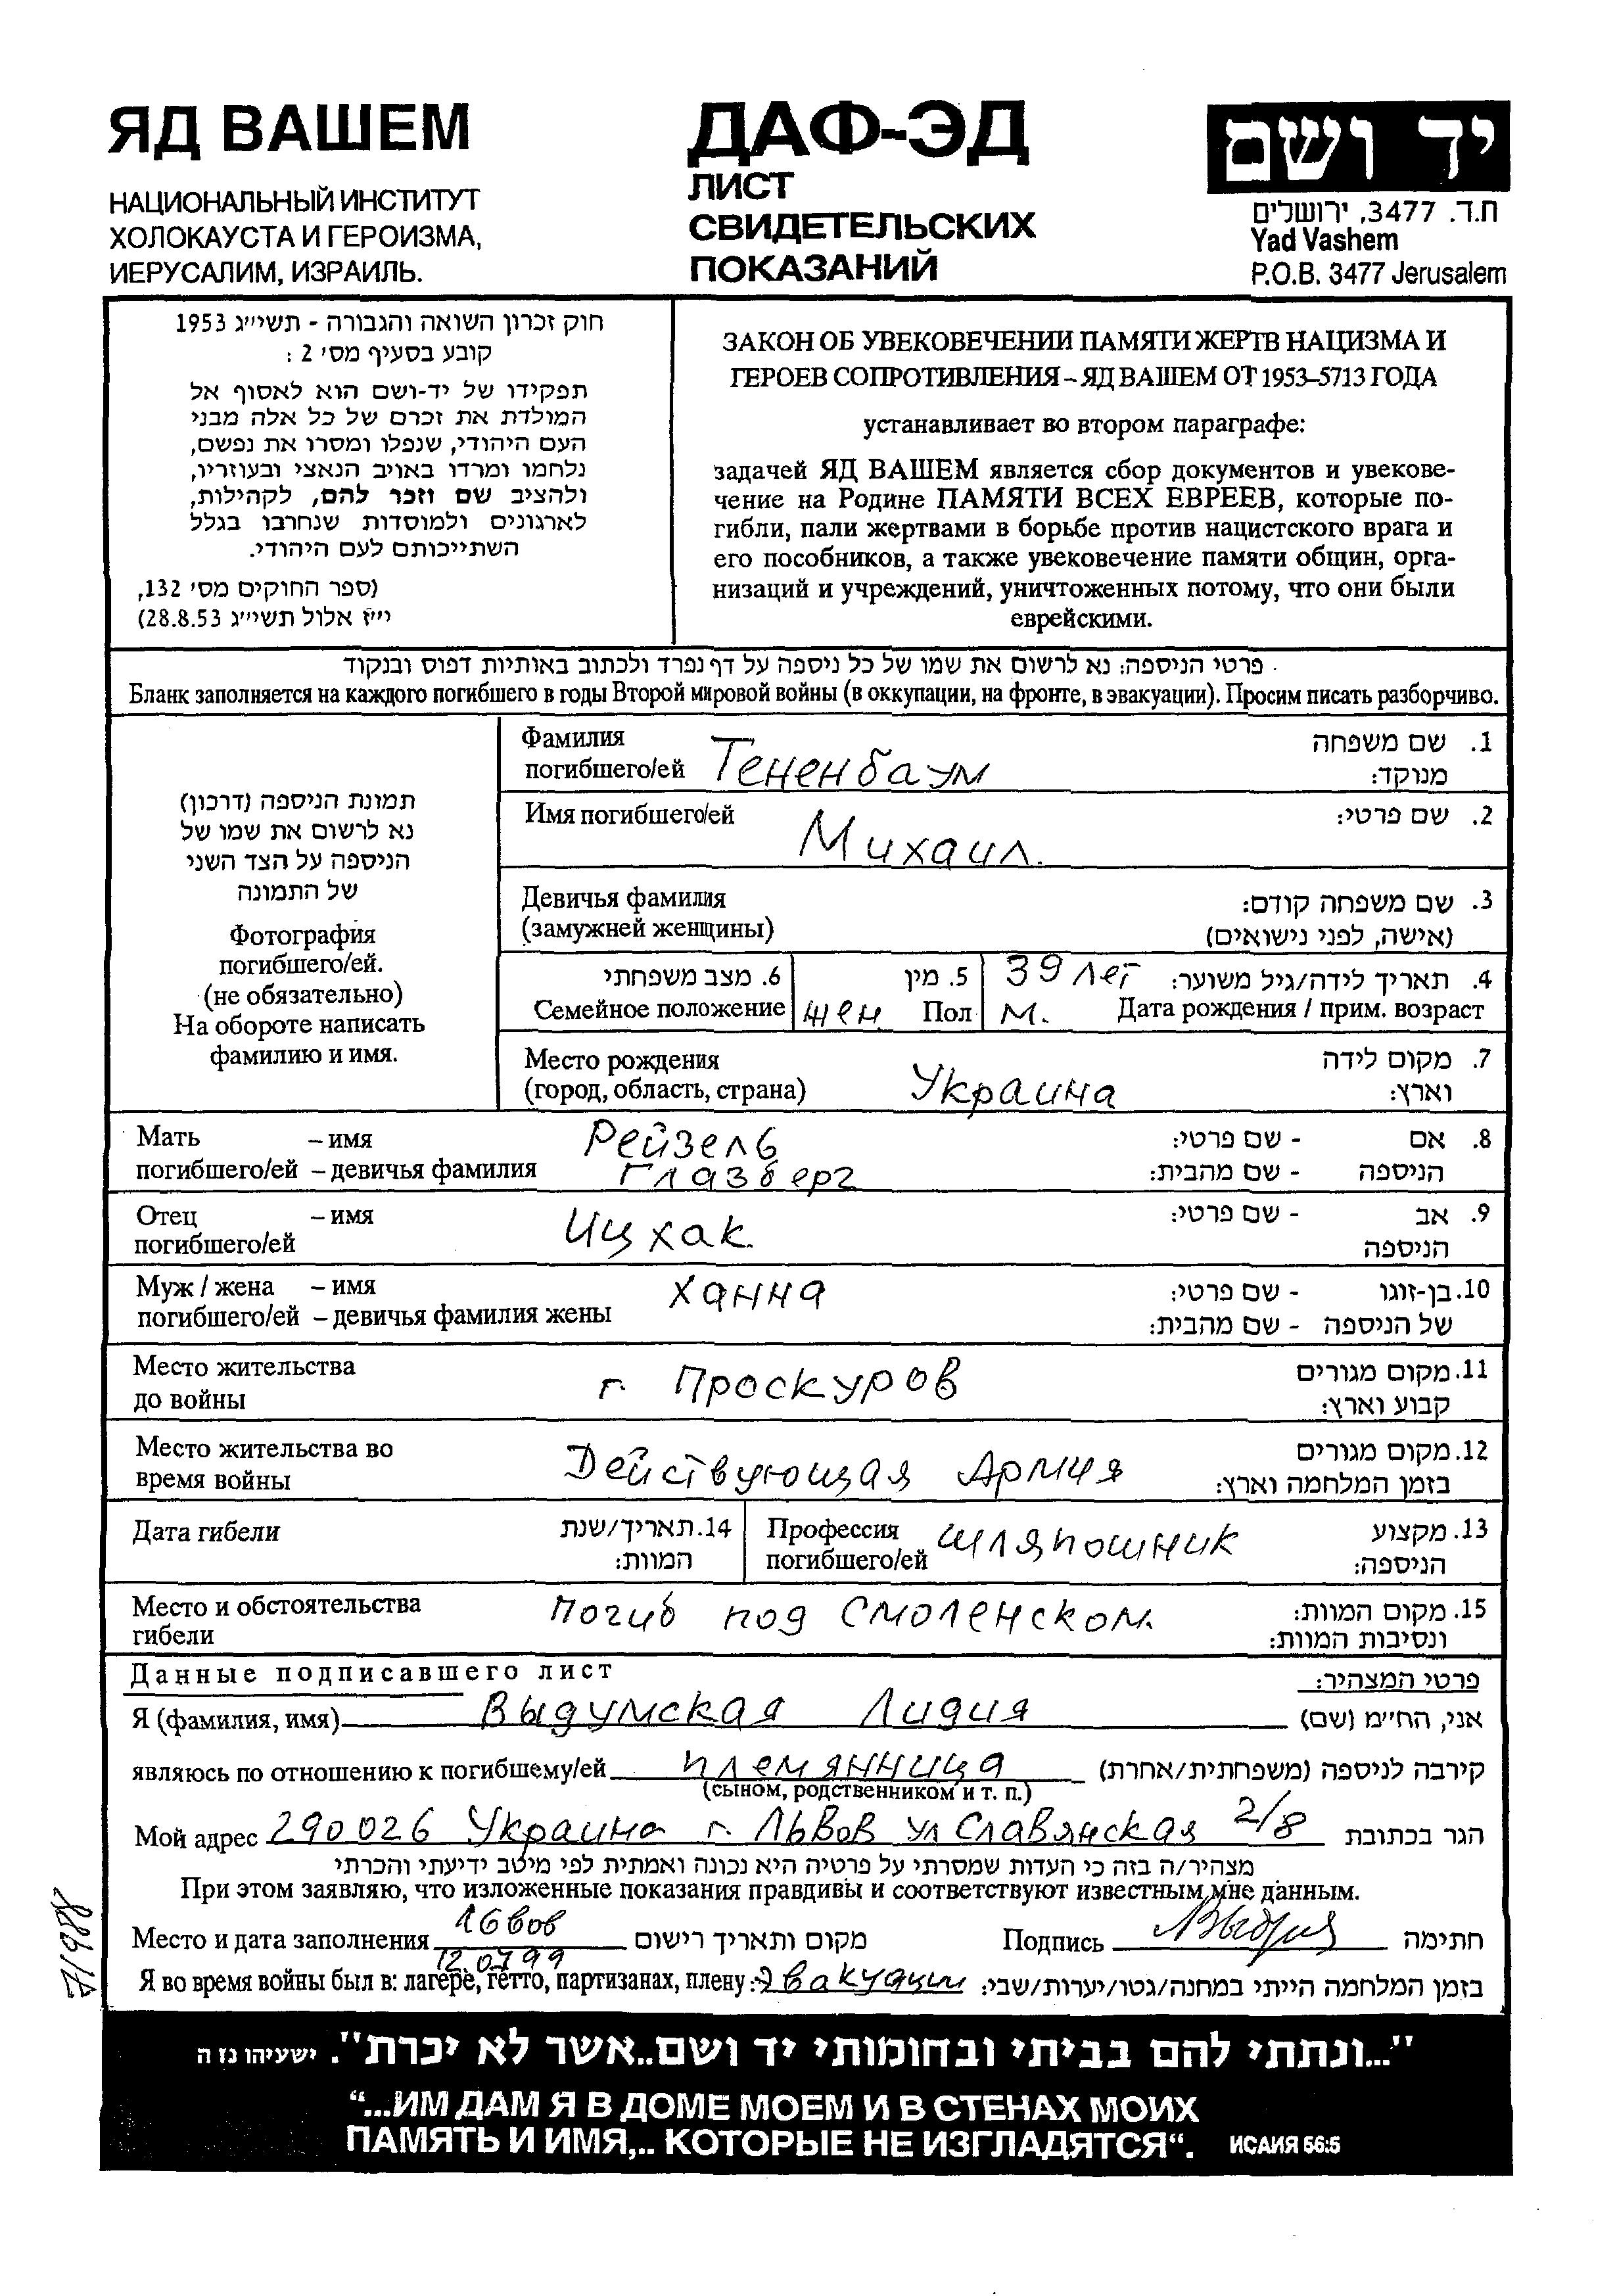 ЯД ВАШЕМ
НАЦИОНАЛЬНЫЙ ИНСТИТУТ
ХОЛОКАУСТА И ГЕРОИЗМА,
ИЕРУСАЛИМ, ИЗРАИЛЬ.
ДАФ-ЭД
ЛИСТ
СВИДЕТЕЛЬСКИХ
ПОКАЗАНИЙ
יד ושם
ת.ד. 3477, ירושלים
Yad Vashem
P.O.B. 3477 Jerusalem
חוק זכרון השואה והגבורה - תשי״ג 1953
קובע בסעיף מס׳ 2 :
תפקידו של יד-ושם הוא לאסוף אל
המולדת את זכרם של כל אלה מבני
העם היהודי, שנפלו ומסרו את נפשם,
נלחמו ומרדו באויב הנאצי ובעוזריו,
ולהציב שם וזכר להם, לקהילות,
לארגונים ולמוסדות שנחרבו בגלל
השתייכותם לעם היהודי.
(ספר החוקים מס׳ 132,
י״ז אלול תשי״ג 28.8.53)
ЗАКОН ОБ УВЕКОВЕЧЕНИИ ПАМЯТИ ЖЕРТВ НАЦИЗМА И
ГЕРОЕВ СОПРОТИВЛЕНИЯ – ЯД ВАШЕМ ОТ 1953–5713 ГОДА
устанавливает во втором параграфе:
задачей ЯД ВАШЕМ является сбор документов и увекове-
чение на Родине ПАМЯТИ ВСЕХ ЕВРЕЕВ, которые по-
гибли, пали жертвами в борьбе против нацистского врага и
его пособников, а также увековечение памяти общин, орга-
низаций и учреждений, уничтоженных потому, что они были
еврейскими.
פרטי הניספה: נא לרשום את שמו של כל ניספה על דף נפרד ולכתוב באותיות דפוס ובנקוד
Бланк заполняется на каждого погибшего в годы Второй мировой войны (в оккупации, на фронте, в эвакуации). Просим писать разборчиво.
תמונת הניספה (דרכון)
נא לרשום את שמו של
הניספה על הצד השני
של התמונה
Фотография
погибшего/ей.
(не обязательно)
На обороте написать
фамилию и имя.
Фамилия
погибшего/ей Тененбаум
1. שם משפחה
מנוקד:
Имя погибшего/ей Михаил. 2. שם פרטי:
Девичья фамилия
(замужней женщины)
3. שם משפחה קודם:
(אישה, לפני נישואים)
6. מצב משפחתי
Семейное положение жен
5. מין
Пол М.
39 лет 4. תאריך לידה/גיל משוער:
Дата рождения / прим. возраст
Место рождения
(город, область, страна) Украина
7. מקום לידה
וארץ:
Мать – имя Рейзель 8. אם - שם פרטי:
погибшего/ей – девичья фамилия Глазберг הניספה - שם מהבית:
Отец – имя Ицхак. 9. אב - שם פרטי:
погибшего/ей הניספה
Муж / жена – имя Ханна 10. בן-זוגו - שם פרטי:
погибшего/ей – девичья фамилия жены של הניספה - שם מהבית:
Место жительства
до войны г. Проскуров
11. מקום מגורים
קבוע וארץ:
Место жительства во
время войны Действующая Армия
12. מקום מגורים
בזמן המלחמה וארץ:
Дата гибели
14. תאריך/שנת
המוות:
Профессия
погибшего/ей шляпошник
13. מקצוע
הניספה:
Место и обстоятельства
гибели Погиб под Смоленском.
15. מקום המוות:
ונסיבות המוות:
Данные подписавшего лист פרטי המצהיר:
Я (фамилия, имя) Выдумская Лидия אני, הח״מ (שם)
являюсь по отношению к погибшему/ей племянница קירבה לניספה (משפחתית/אחרת)
(сыном, родственником и т. п.)
Мой адрес 290026 Украина г. Львов ул Славянская 2/8 הגר בכתובת
מצהיר/ה בזה כי העדות שמסרתי על פרטיה היא נכונה ואמתית לפי מיטב ידיעתי והכרתי
При этом заявляю, что изложенные показания правдивы и соответствуют известным мне данным.
Место и дата заполнения מקום ותאריך רישום Подпись חתימה
12.07.99
Я во время войны был в: лагере, гетто, партизанах, плену: эвакуации בזמן המלחמה הייתי במחנה/גטו/יערות/שבי:
"...ונתתי להם בביתי ובחומותי יד ושם..אשר לא יכרת". ישעיהו נז ה
“...ИМ ДАМ Я В ДОМЕ МОЕМ И В СТЕНАХ МОИХ
ПАМЯТЬ И ИМЯ,.. КОТОРЫЕ НЕ ИЗГЛАДЯТСЯ“. ИСАИЯ 56:5